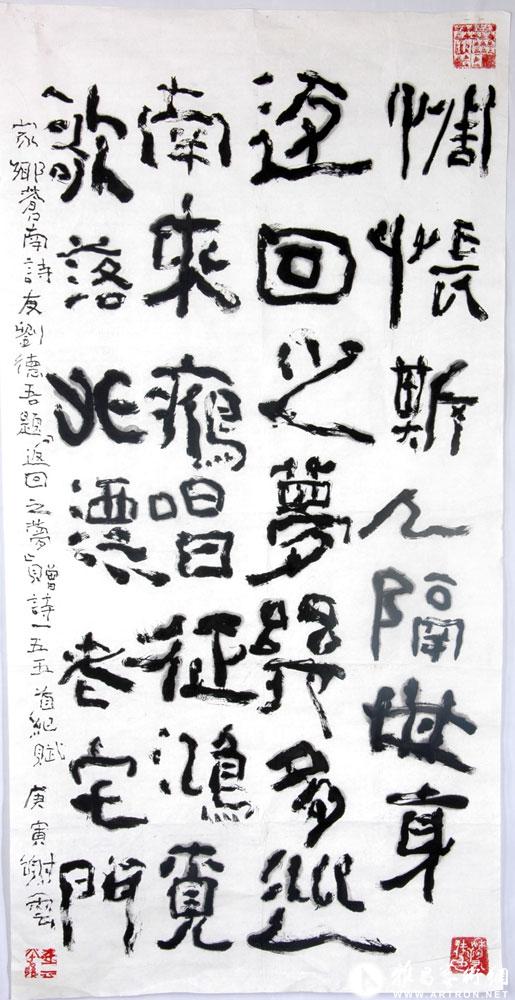 惆悵斯人隔世身
返回之夢多
南來唱征鴻
歌落北漂老宅門
家鄉蒼南詩友劉德吾題「返回之夢」贈詩一五五首紀賦 庚寅 謝雲
雅昌艺术网
WWW.ARTRON.NET